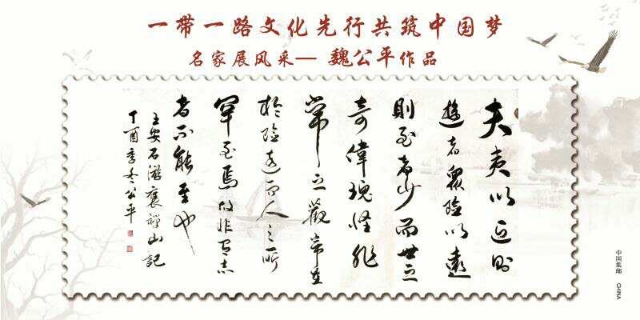 一带一路文化先行共筑中国梦
名家展风采— 魏公平作品
夫夷以近則
遊者眾險以遠
則至者少而世之
奇偉瑰怪非
常之觀常在
於險遠而人之所
罕至焉故非有志
者不能至也
王安石游褒禅山記
丁酉季冬公平
中国集邮 CHINA